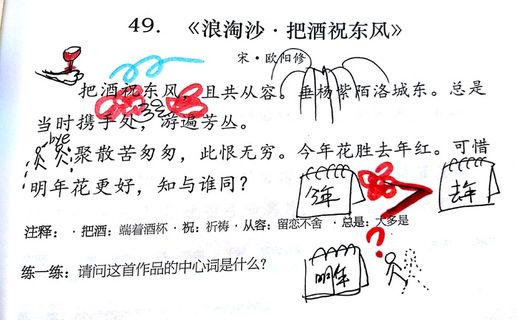 49. 《浪淘沙·把酒祝东风》
宋·欧阳修
把酒祝东风，且共从容。垂杨紫陌洛城东。总是
当时携手处，游遍芳丛。
bye
聚散苦匆匆，此恨无穷。今年花胜去年红。可惜
明年花更好，知与谁同？
今年
去年
注释： ·把酒：端着酒杯 ·祝：祈祷 ·从容：留恋不舍 ·总是：大多是
?
明年
练一练：请问这首作品的中心词是什么？